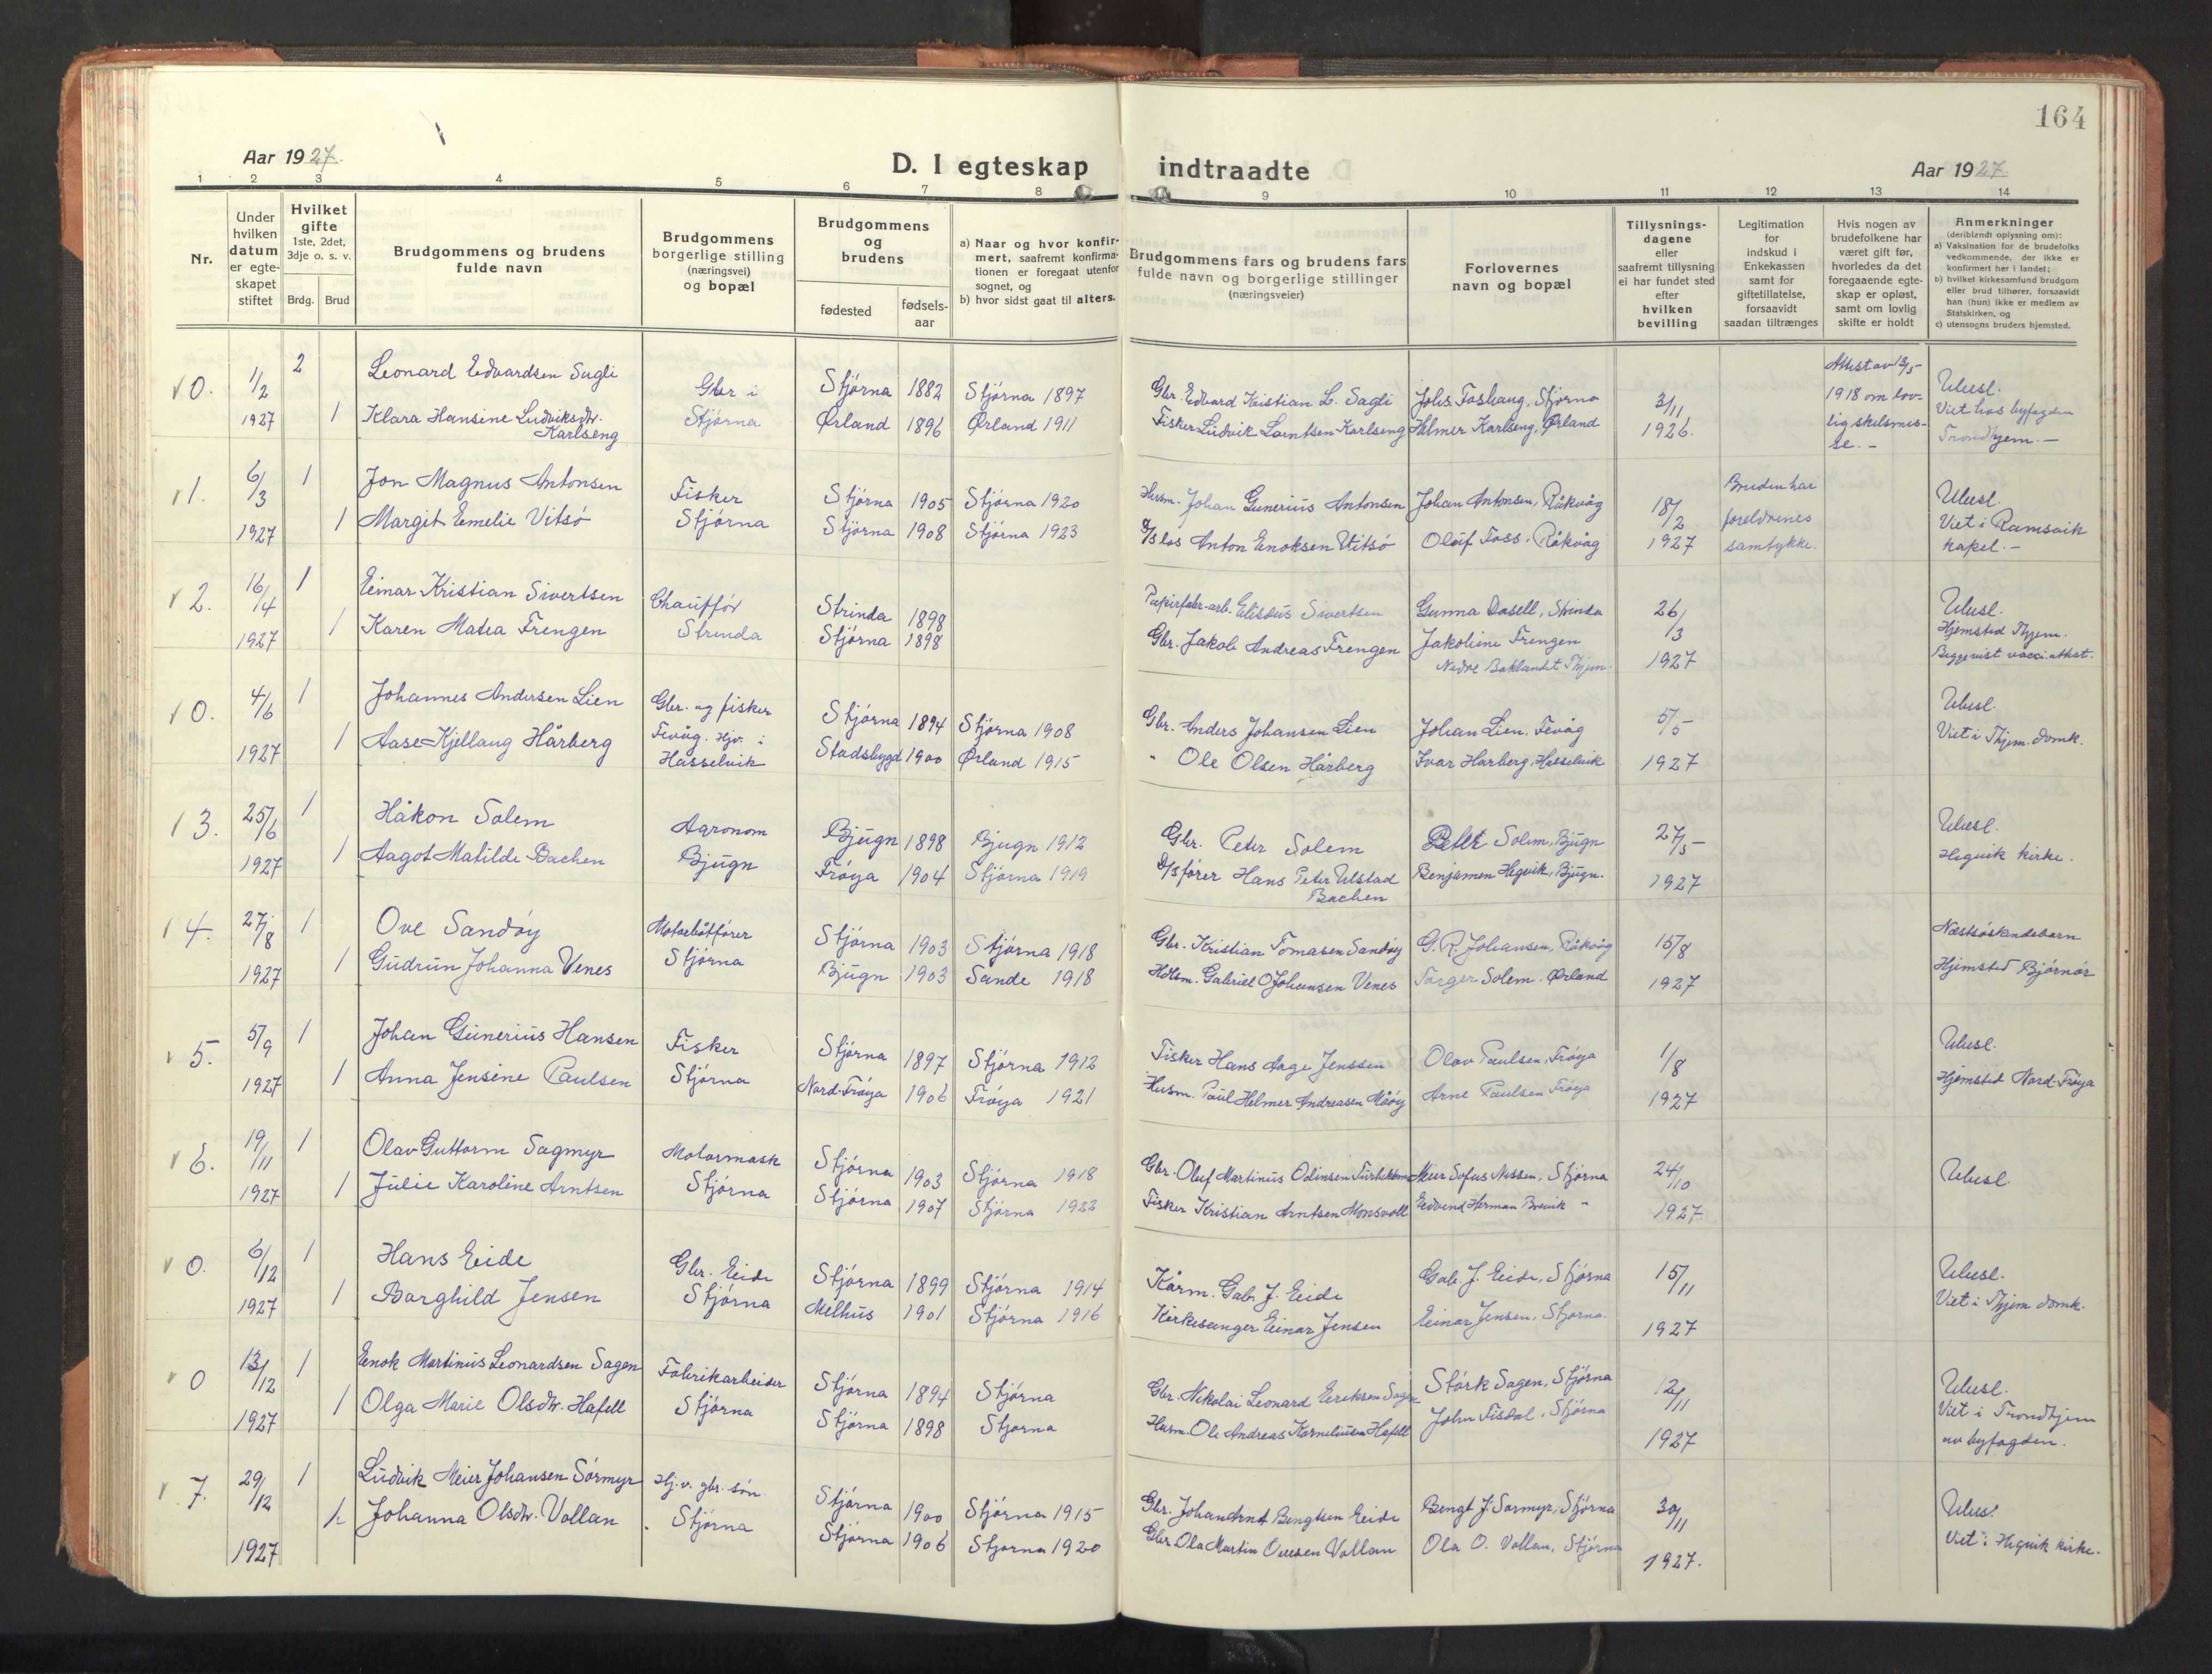 164
Aar 1927.
D. I egteskap indtraadte
Aar 1927.
1 2 3 4 5 6 7 8 9 10 11 12 13 14
Nr.
Under hvilken datum er egteskapet stiftet
Hvilket gifte 1ste, 2det, 3dje o. s. v.
Brdg. Brud
Brudgommens og brudens fulde navn
Brudgommens borgerlige stilling (næringsvei) og bopæl
Brudgommens og brudens
fødested
fødsels-aar
a) Naar og hvor konfirmert, saafremt konfirmationen er foregaat utenfor sognet, og
b) hvor sidst gaat til alters.
Brudgommens fars og brudens fars fulde navn og borgerlige stillinger (næringsveier)
Forlovernes navn og bopæl
Tillysningsdagene eller saafremt tillysning ei har fundet sted efter hvilken bevilling
Legitimation for indskud i Enkekassen samt for giftetillatelse, forsaavidt saadan tiltrænges
Hvis nogen av brudefolkene har været gift før, hvorledes da det foregaaende egteskap er opløst, samt om lovlig skifte er holdt
Anmerkninger (deriblandt oplysning om):
a) Vaksination for de brudefolks vedkommende, der ikke er konfirmert her i landet;
b) hvilket kirkesamfund brudgom eller brud tilhører, forsaavidt han (hun) ikke er medlem av Statskirken, og
c) utensogns bruders hjemsted.
0. 1/2 1927 2 Leonard Edvardsen Sugli Gbr i Stjørna Stjørna 1882 Stjørna 1897 Gbr. Edvard Kristian L. Sagli Johs. Foshaug, Stjørna 3/11 1926. Attest av 13/5 1918 om lovlig skilsmisse. - Ubesl. Viet hos byfogden Trondhjem. -
1 Klara Hansine Ludviksdtr. Karlseng Ørland 1896 Ørland 1911 Fisker Ludvik Lorntsen Karlseng Hilmer Karlseng, Ørland
1. 6/3 1927 1 Jon Magnus Antonsen Fisker Stjørna Stjørna 1905 Stjørna 1920 Husm. Johan Gunerius Antonsen Johan Antonsen, Råkvåg 18/2 1927 Bruden har foreldrenes samtykke. Ubesl. Viet i Ramsvik kapel. -
1 Margit Emelie Vitsø Stjørna 1908 Stjørna 1923 D/S los Anton Enoksen Vitsø Oluf Foss, Råkvåg
2. 16/4 1927 1 Einar Kristian Sivertsen Chauffør Strinda Strinda 1898 Papirfabr.arb. Elisæus Sivertsen Gunna Dasell, Strinda 26/3 1927 Ubesl. Hjemsted Thjem. vacci. attst.
1 Karen Matea Frengen Stjørna 1898 Gbr. Jakob Andreas Frengen Jakobine Frengen Nedre Baklandet Thjem.
0. 4/6 1927 1 Johannes Andersen Lien Gbr. og fisker Fevåg. Hjv. i Hasselvik Stjørna 1894 Stjørna 1908 Gbr. Anders Johansen Lien Johan Lien, Fevåg 5/5 1927 Ubesl. Viet i Thjem. domk.
1 Aase Kjellaug Hårberg Stadsbygd 1900 Ørland 1915 " Ole Olsen Hårberg Ivar Harberg, Hasselvik
3. 25/6 1927 1 Håkon Solem Agronom Bjugn Bjugn 1898 Bjugn 1912 Gbr. Peter Solem Peter Solem, Bjugn 27/5 1927 Ubesl. Hegvik kirke.
1 Aagot Matilde Bachen Frøya 1904 Stjørna 1919 D/S fører Hans Peter Ulstad Bachen Benjamen Hegvik, Bjugn.
4. 27/8 1927 1 Ove Sandøy Motorbåtfører Stjørna Stjørna 1903 Stjørna 1918 Gbr. Kristian Tomasen Sandøy G. R. Johansen, Råkvåg 15/8 1927 Næstsøskendebarn Hjemsted Bjørnør
1 Gudrun Johanna Venes Bjugn 1903 Sande 1918 Hdlsm. Gabriel O Johansen Venes Torger Solem. Ørland
5. 5/9 1927 1 Johan Gunerius Hansen Fisker Stjørna Stjørna 1897 Stjørna 1912 Fisker Hans Aage Jenssen Olav Paulsen, Frøya 1/8 1927 Ubesl. Hjemsted Nord-Frøya
1 Anna Jensine Paulsen Nord-Frøya 1906 Frøya 1921 Husm. Paul Helmer Andreasen Måøy Arne Paulsen Frøya
6. 19/11 1927 1 Olav Guttorm Sagmyr Motormask Stjørna Stjørna 1903 Stjørna 1918 Gbr. Oluf Martinus Odinsen Meier Sofus Nissen, Stjørna 24/10 1927 Ubesl.
1 Julie Karoline Arntsen Stjørna 1907 Stjørna 1922 Fisker Kristian Arntsen Monsvoll Edvind Herman Brevik "
0. 6/12 1927 1 Hans Eide Gbr. Eide Stjørna Stjørna 1899 Stjørna 1914 Kårm. Gab. J. Eide Gab. J. Eide, Stjørna 15/11 1927 Ubesl. Viet i Thjem domk.
1 Borghild Jensen Melhus 1901 Stjørna 1916 Kirkesanger Einar Jensen Einar Jensen, Stjørna.
0 13/12 1927 1 Enok Martinus Leonardsen Sagen Fabrikarbeider Stjørna Stjørna 1894 Stjørna Gbr. Nikolai Leonard Eriksen Sagen Størk Sagen, Stjørna 12/11 1927 Ubesl. Viet i Trondhjem av byfogden.
1 Olga Marie Olsdtr. Hafell Stjørna 1898 Stjørna Husm. Ole Andreas Korneliusen Hafell John Fisdal, Stjørna
7. 29/12 1927 1 Ludvik Meier Johansen Sørmyr Hj.v. gbr. søn Stjørna Stjørna 1900 Stjørna 1915 Gbr. Johan Arnt Bengtsen Eide Bengt J. Sørmyr, Stjørna 30/11 1927. Ubes. Viet i Hegvik kirke.
1. Johanna Olsdtr. Vollan Stjørna 1906 Stjørna 1920 Gbr. Ola Martin Ovesen Vollan Ola O. Vollan, Stjørna